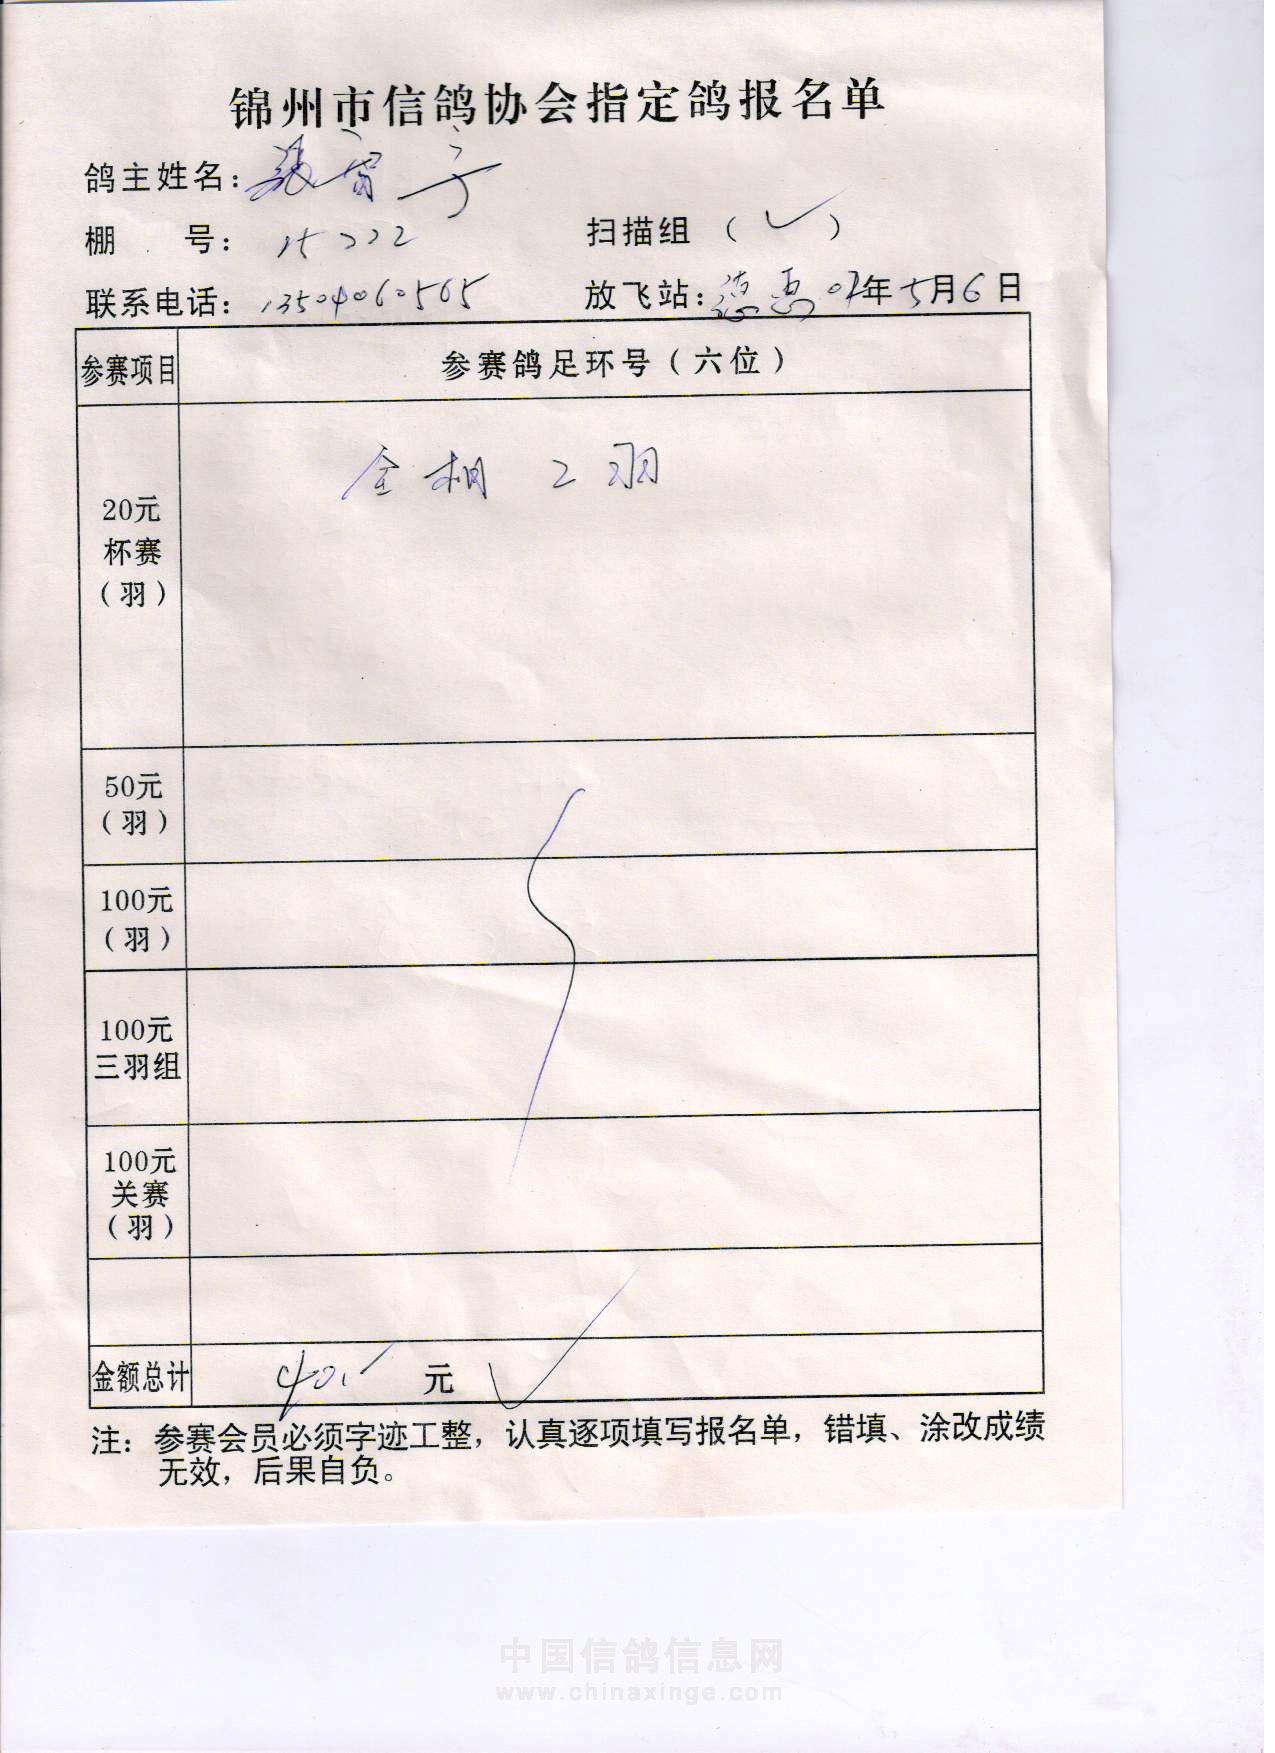 锦州市信鸽协会指定鸽报名单
鸽主姓名：
棚 号： 15222 扫描组 （✓）
联系电话： 13504060565 放飞站：德惠 07年5月6日
参赛项目 参赛鸽足环号（六位）
20元
杯赛
（羽）
全棚 2羽
50元
（羽）
100元
（羽）
100元
三羽组
100元
关赛
（羽）
金额总计 40.- 元 ✓
注：参赛会员必须字迹工整，认真逐项填写报名单，错填、涂改成绩
无效，后果自负。
中国信鸽信息网
www.chinaxinge.com